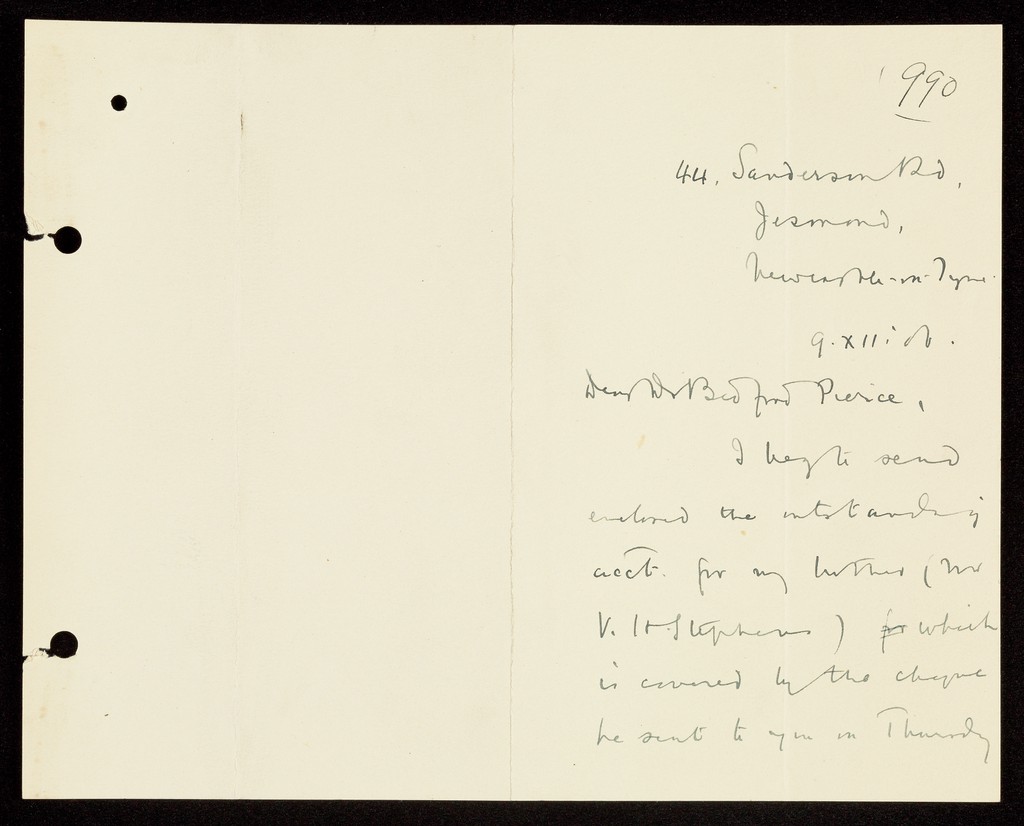 990
44, Sanderson Rd,
Jesmond,
Newcastle-on-Tyne.
9.XII:06.
Dear Dr Bedford Pierce,
I beg to send
enclosed the outstanding
acct. for my brother (Mr
V. H. Stephens) for which
is covered by the cheque
he sent to you on Thursday